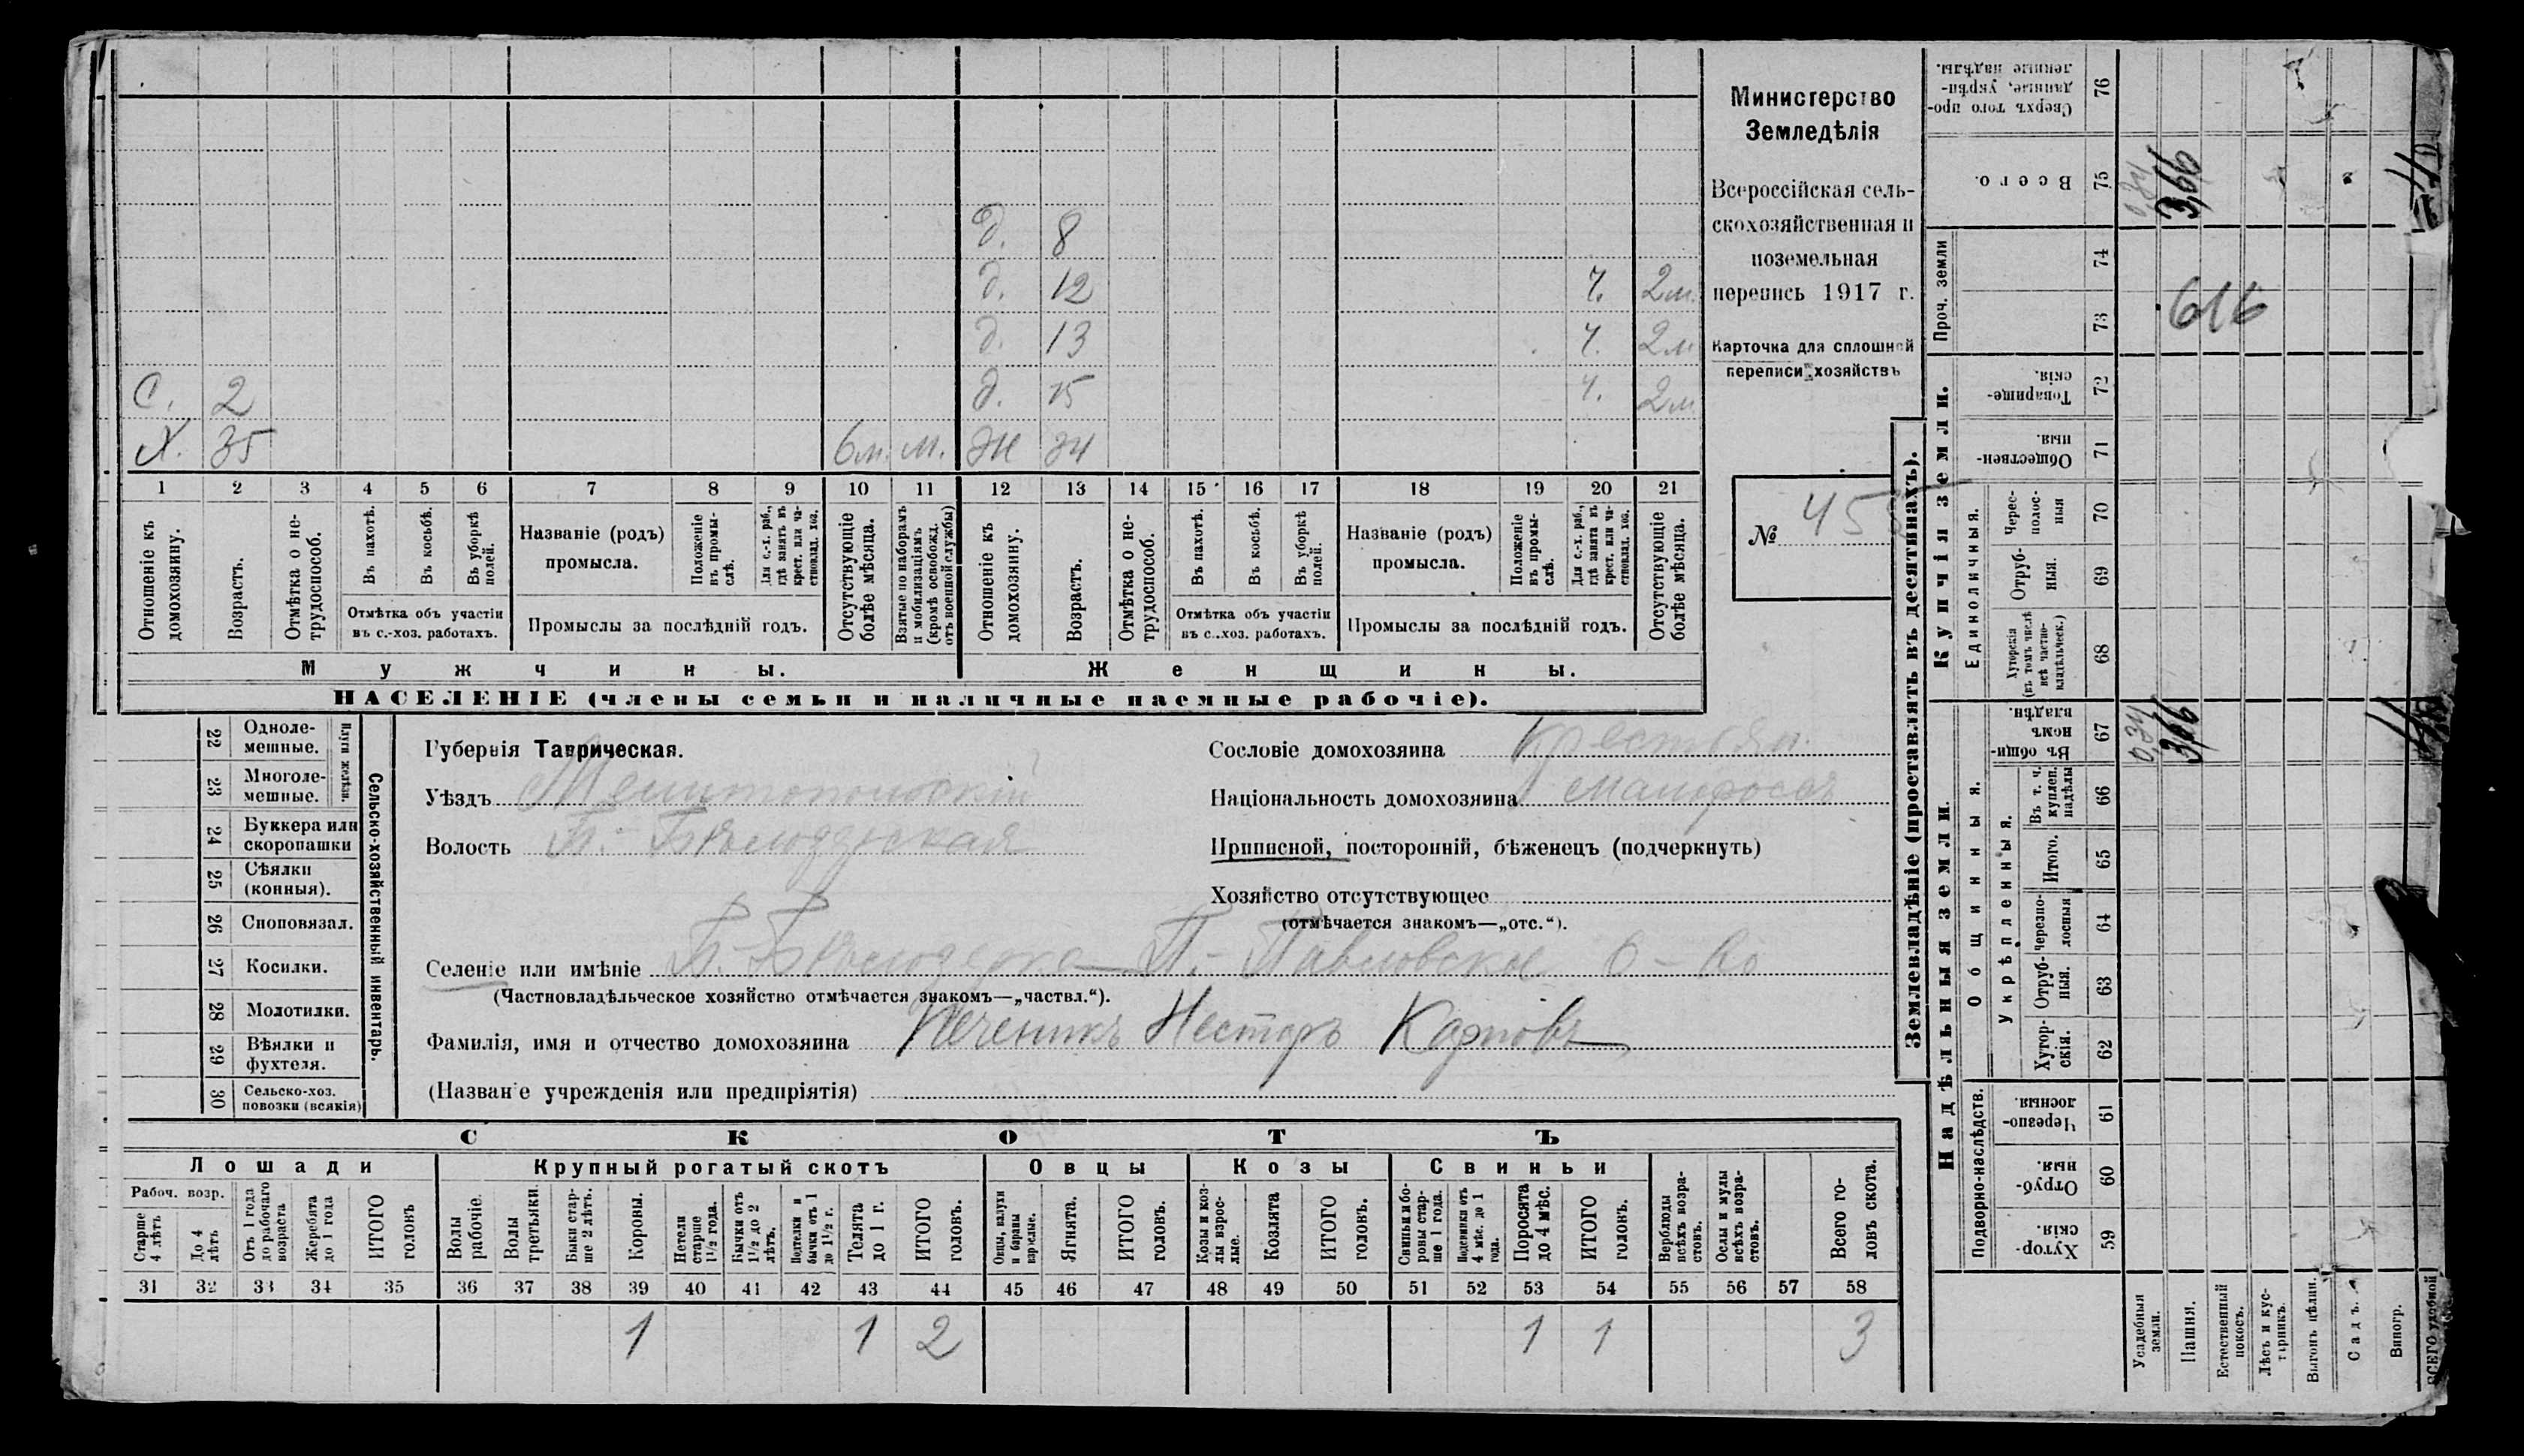 С. 2
Х. 35 6м. м.
д. 8
д. 12 ч. 2м.
д. 13 ч. 2м
д. 15 ч. 2м
ж 34
1 2 3 4 5 6 7 8 9 10 11 12 13 14 15 16 17 18 19 20 21
Отношеніе къ домохозяину.
Возрастъ.
Отмѣтка о не-
трудоспособ.
Въ пахотѣ.
Въ косьбѣ.
Въ уборкѣ
полей.
Отмѣтка объ участіи
въ с.-хоз. работахъ.
Названіе (родъ)
промысла.
Положеніе
въ промы-
слѣ.
Для с.-х. раб.,
гдѣ занятъ въ
крест. или ча-
стновлад. хоз.
Промыслы за послѣдній годъ.
Отсутствующіе
болѣе мѣсяца.
Взятые по наборамъ
и мобилизаціямъ
(кромѣ освобожд.
отъ военной службы)
Отношеніе къ
домохозяину.
Возрастъ.
Отмѣтка о не-
трудоспособ.
Въ пахотѣ.
Въ косьбѣ.
Въ уборкѣ
полей.
Отмѣтка объ участіи
въ с.-хоз. работахъ.
Названіе (родъ)
промысла.
Положеніе
въ промы-
слѣ.
Для с.-х. раб.,
гдѣ занята въ
крест. или ча-
стновлад. хоз.
Промыслы за послѣдній годъ.
Отсутствующіе
болѣе мѣсяца.
Мужчины. Женщины.
НАСЕЛЕНІЕ (члены семьи и наличные наемные рабочіе).
Министерство
Земледѣлія
Всероссійская сель-
скохозяйственная и
поземельная
перепись 1917 г.
Карточка для сплошной
переписи хозяйствъ
№ 45
22 Одноле-
мешные.
23 Многоле-
мешные.
Плуги желѣзн.
24 Буккера или
скоропашки
25 Сѣялки
(конныя).
26 Сноповязал.
27 Косилки.
28 Молотилки.
29 Вѣялки и
фухтеля.
30 Сельско-хоз.
повозки (всякія)
Сельско-хозяйственный инвентарь.
Губернія Таврическая.
Уѣздъ Мелитопольскій
Волость Б. Бѣлозерская
Селеніе или имѣніе Б. Бѣлозерка П.-Павловское о-во
(Частновладѣльческое хозяйство отмѣчается знакомъ—„частвл.“).
Фамилія, имя и отчество домохозяина Печеникъ Несторъ Карповъ
(Названіе учрежденія или предпріятія)
Сословіе домохозяина крестьян.
Національность домохозяина малороссъ
Приписной, посторонній, бѣженецъ (подчеркнуть)
Хозяйство отсутствующее
(отмѣчается знакомъ—„отс.“).
СКОТЪ
Лошади Крупный рогатый скотъ Овцы Козы Свиньи
Рабоч. возр.
Старше
4 лѣтъ
До 4
лѣтъ
Отъ 1 года
до рабочаго
возраста
Жеребята
до 1 года
ИТОГО
головъ
Волы
рабочіе.
Волы
третьяки.
Быки стар-
ше 2 лѣтъ.
Коровы.
Нетели
старше
1½ года.
Бычки отъ
1½ до 2
лѣтъ.
Подтелки и
бычки отъ 1
до 1½ г.
Телята
до 1 г.
ИТОГО
головъ.
Овцы, валухи
и бараны
взрослые.
Ягнята.
ИТОГО
головъ.
Козы и коз-
лы взрос-
лые.
Козлята
ИТОГО
головъ.
Свиньи и бо-
ровы стар-
ше 1 года.
Подсвинки отъ
4 мѣс. до 1
года.
Поросята
до 4 мѣс.
ИТОГО
головъ.
Верблюды
всѣхъ возра-
стовъ.
Ослы и мулы
всѣхъ возра-
стовъ.
Всего го-
ловъ скота.
31 32 33 34 35 36 37 38 39 40 41 42 43 44 45 46 47 48 49 50 51 52 53 54 55 56 57 58
1 1 2 1 1 3
Землевладѣніе (проставлять въ десятинахъ).
Надѣльныя земли.
Подворно-наслѣдств.
Хутор-
скія. 59
Отруб-
ныя. 60
Черезпо-
лосныя. 61
Общинныя.
Укрѣпленныя.
Хутор-
скія. 62
Отруб-
ныя. 63
Черезпо-
лосныя 64
Итого. 65
Въ т. ч.
куплен.
надѣлы 66
Въ общин-
номъ
владѣн. 67
Купчія земли.
Единоличныя.
Хуторскія
(въ томъ числѣ
всѣ частно-
владѣльческ.) 68
Отруб-
ныя. 69
Черес-
полос-
ныя 70
Обществен-
ныя. 71
Товарище-
скія. 72
Проч. земли
73 74
Всего. 75
Сверхъ того про-
данные, укрѣп-
ленные надѣлы. 76
Усадебныя
земли.
Пашня. 3,66 3,66
616
Естественный
покосъ.
Лѣсъ и кус-
тарникъ.
Выгонъ цѣлин.
Садъ.
Виногр.
ВСЕГО удобной